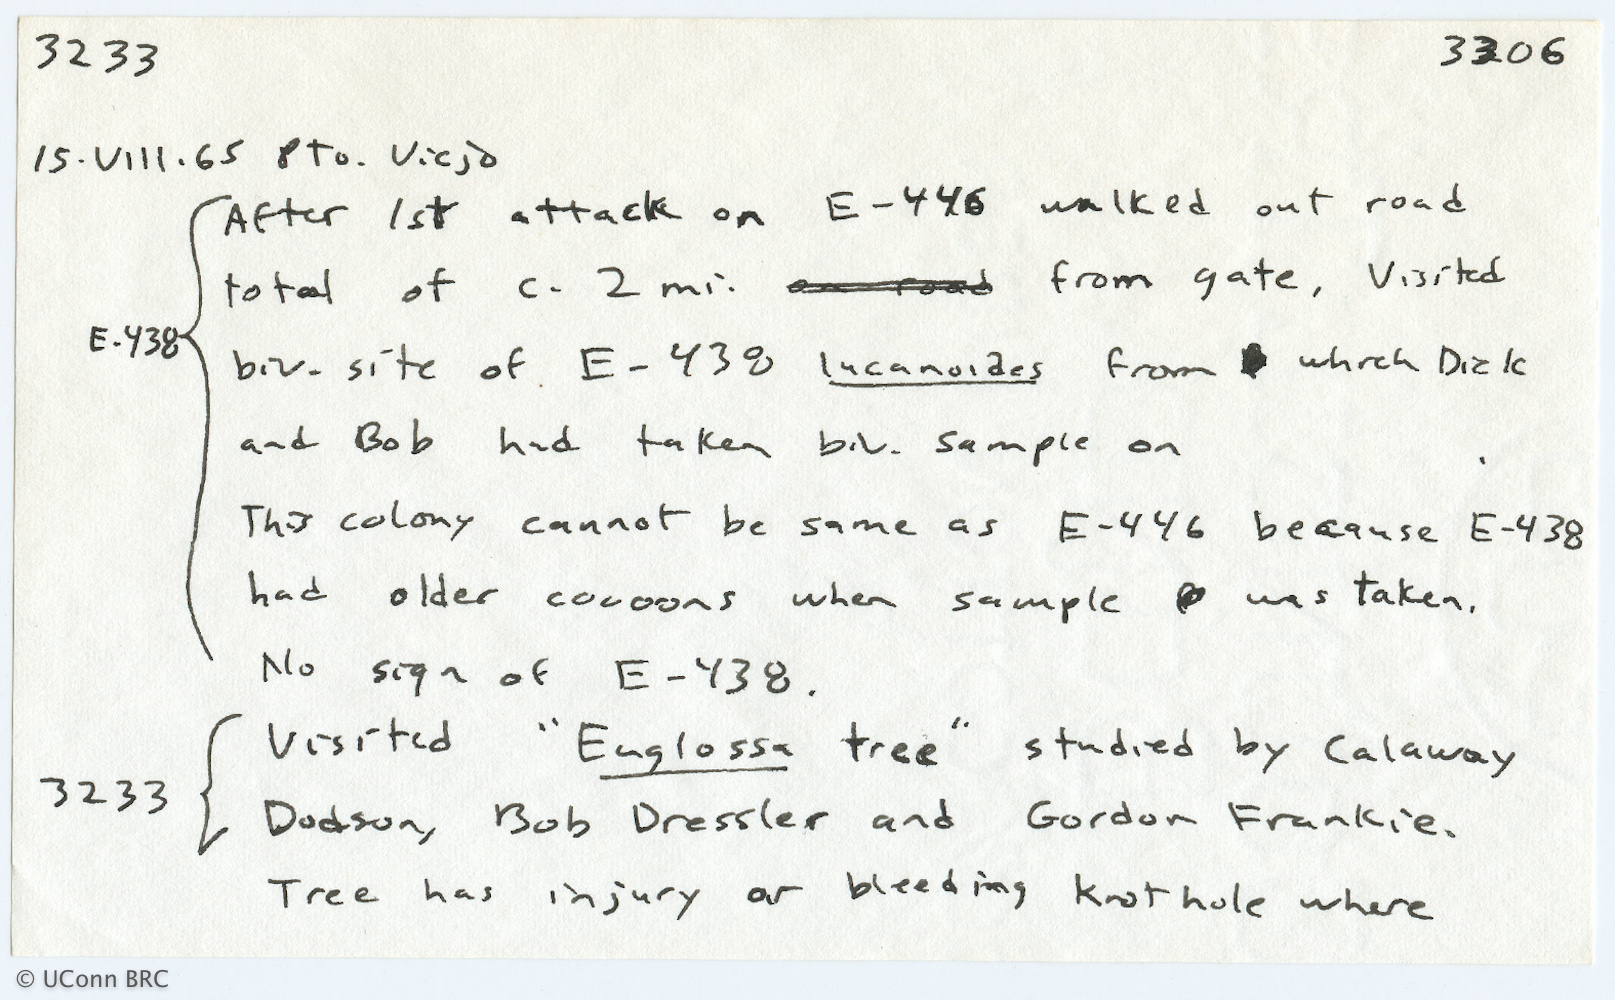 3233 3206
15.VIII.65 Pto. Viejo
After 1st attack on E-446 walked out road
total of c. 2 mi. on road from gate, Visited
E-438 biv. site of E-438 lucanoides from which Dick
and Bob had taken biv. sample on .
This colony cannot be same as E-446 because E-438
had older cocoons when sample was taken.
No sign of E-438.
Visited "Euglossa tree" studied by Calaway
3233 Dodson, Bob Dressler and Gordon Frankie.
Tree has injury or bleeding knothole where
© UConn BRC